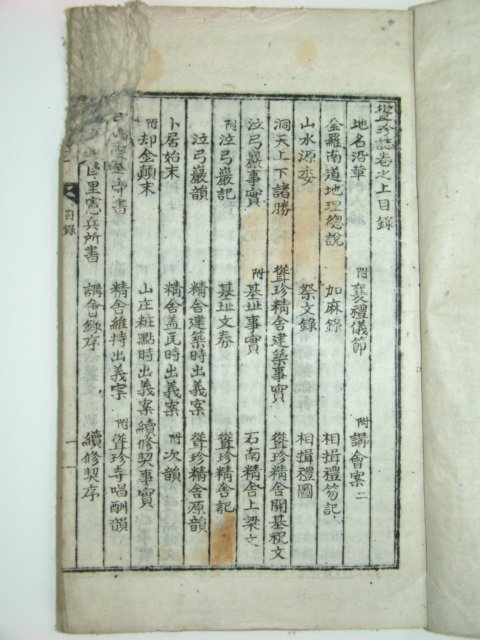 聳珍誌卷之上目錄
地名沿革 附襄禮儀節 附講會案二
全羅南道地理總說 加麻錄 相揖禮笏記
山水源委 祭文錄 相揖禮圖
洞天上下諸勝 聳珍精舍建築事實 聳珍精舍開基祝文
泣弓巖事實 附基址事實 石南精舍上梁文
附泣弓巖記 基址文券 聳珍精舍記
泣弓巖韻 精舍建築時出義案 聳珍精舍原韻
卜居始末 精舍盖瓦時出義案 附次韻
附却金顚末 山庄粧點時出義案 續修契事實
寺書 精舍維持出義案 附聳珍寺唱酬韻
里憲兵所書 講會錄序 續修契序
目錄 一